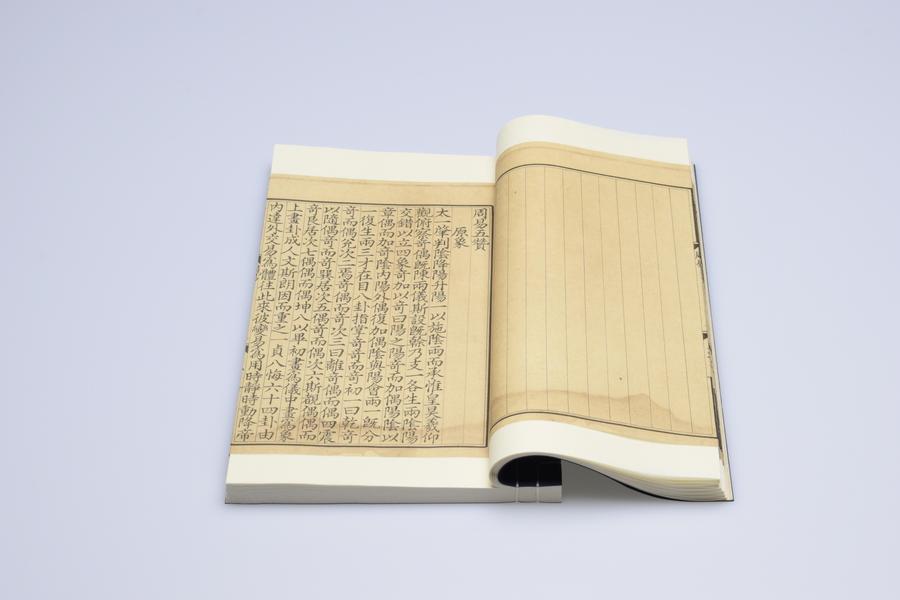 周易五贊
原象
太一肇判陰降陽升陽一以施陰兩而承惟皇昊羲仰
觀俯察奇偶旣陳兩儀斯設旣幹乃支一各生兩陰陽
交錯以立四象奇加以奇曰陽之陽奇而加偶陽陰以
章偶而加奇陰內陽外偶復加偶陰與陽會兩一旣分
一復生兩三才在目八卦指掌奇奇而奇初一曰乾奇
奇而偶兌次二焉奇偶而奇次三曰離奇偶而偶四震
以隨偶奇而奇巽居次五偶奇而偶坎六斯覩偶偶而
奇艮居次七偶偶而偶坤八以畢初畫為儀中畫為象
上畫卦成人文斯朗因而重之一貞八悔六十四卦由
內達外交易為體往此來彼變易為用時靜時動降帝